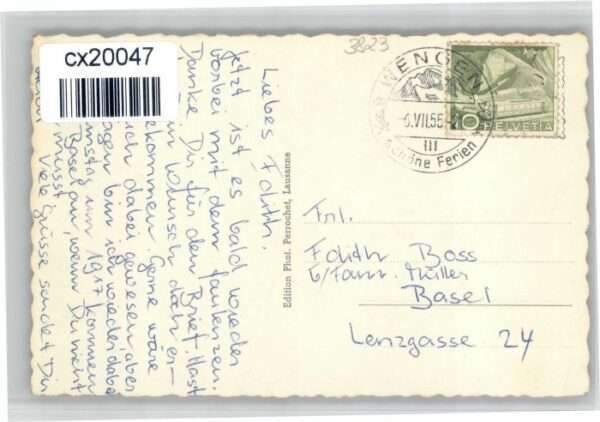 cx20047
3823
WENGEN
6.VII.55
III
Schöne Ferien
10
HELVETIA
Liebes Edith.
Jetzt ist es bald wieder
vorbei mit dem faulenzen.
Danke Dir für den Brief. Hast
Wunsch doch er-
bekommen. Gerne wäre
ich dabei gewesen, aber
bin ich wieder dabei
um 19.17 kommen
Basel an, wenn Du nicht
musst.
Viele Grüsse sendet Dir
Edition Phot. Perrochet, Lausanne
Frl.
Edith Boss
b/Fam. Müller
Basel
Lenzgasse 24